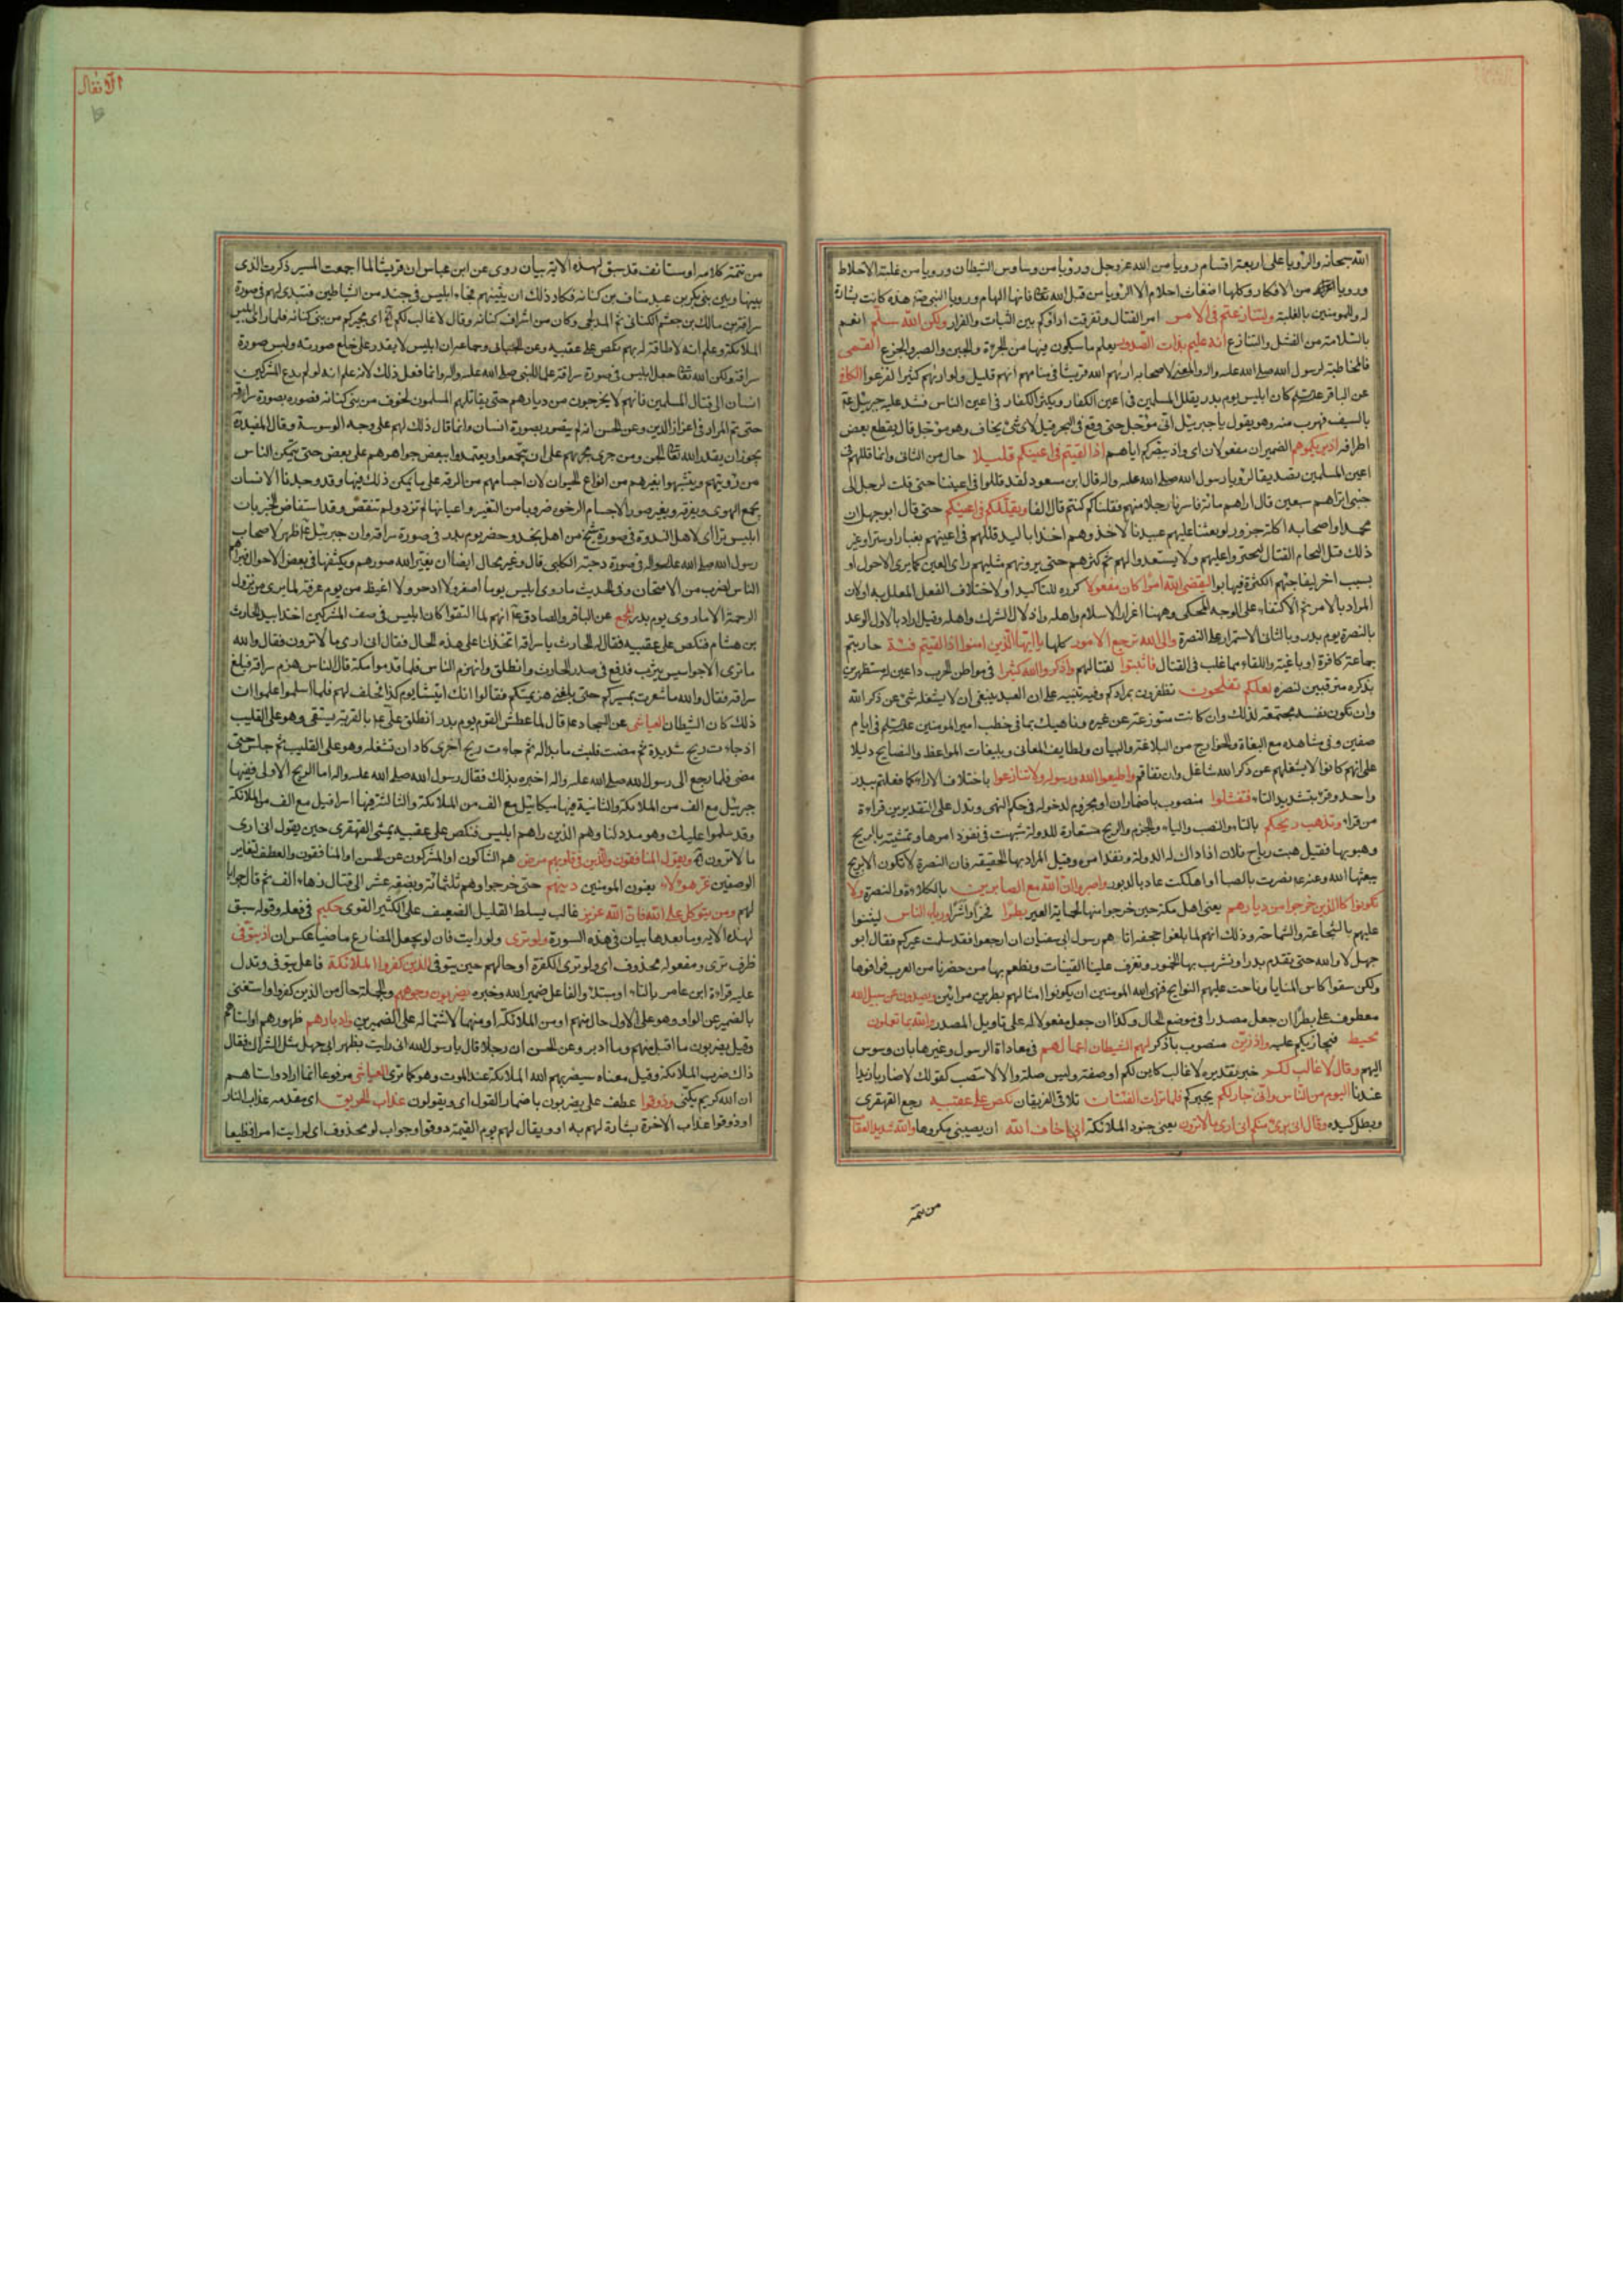 الانفال
الله سبحانه والرؤيا على اربعة اقسام رويا من الله عز وجل ورؤيا من وساوس الشيطان ورويا من غلبة الاخلاط
ورويا من الافكار وكلها اضغاث احلام الا الرؤيا من قبل الله تعا فانها الهام ورويا النبي هذه كانت بشارة
له والمومنين بالغلبة ولتنازعتم في الامر امر القتال وتفرقت اراؤكم بين الثبات والفرار ولكن الله سلم انعم
بالسلامة من الفشل والتنازع انه عليم بذات الصدور يعلم ما سيكون فيها من الجرءة والجبن والصبر والجزع القمى
فالمخاطبة لرسول الله صلى الله عليه واله والمعنى لاصحابه اريهم الله قريشا في منامهم انهم قليل ولو اريهم كثيرا لفزعوا الكافي
عن الباقر كان ابليس يوم بدر يقلل المسلمين في اعين الكفار ويكثر الكفار في اعين الناس فشد عليه جبرئيل
بالسيف فهرب منه وهو يقول يا جبرئيل اني مؤجل حتى وقع في البحر قيل لاي شئ يخاف وهو مؤجل قال يقطع بعض
اطرافه واذ يريكموهم الضميران مفعولان اى واذ يبصركم اياهم اذ التقيتم في اعينكم قليلا حال من الثاني وانما قللهم في
اعين المسلمين تصديقا لرؤيا رسول الله صلى الله عليه واله قال ابن مسعود لقد قللوا في اعيننا حتى قلت لرجل الى
جنبي اتراهم سبعين قال اراهم مائة فاسرنا رجلا منهم فقلنا كم كنتم قال الفا ويقللكم في اعينهم حتى قال ابو جهل ان
محمدا واصحابه اكلة جزور لو بعثنا عليهم عبيدنا لاخذوهم اخذا باليد قللهم في اعينهم
ذلك قبل التحام القتال ليجترؤا عليهم ولا يستعدوا لهم ثم كثرهم حتى يرونهم مثليهم راى العين كما يرى الاحول او
بسبب اخر ليفاجئهم الكثرة فيهابوا ليقضى الله امرا كان مفعولا كرره للتاكيد او لاختلاف الفعل المعلل به او لان
المراد بالامر ثم الاكتفاء على الوجه المحكي وههنا اعزاز الاسلام واهله واذلال الشرك واهله وقيل اراد بالاول الوعد
بالنصرة يوم بدر وبالثاني الاستمرار على النصرة والى الله ترجع الامور كلها يا ايها الذين امنوا اذا لقيتم فئة حاربتم
جماعة كافرة او باغية واللقاء مما غلب في القتال فاثبتوا لقتالهم واذكروا الله كثيرا في مواطن الحرب داعين له مستظهرين
بذكره مترقبين لنصره لعلكم تفلحون تظفرون بمرادكم وفيه تنبيه على ان العبد ينبغى ان لا يشغله شئ عن ذكر الله
وان تكون نفسه مجتمعة لذلك وان كانت متوزعة عن غيره وناهيك بما في خطب امير المومنين في ايام
صفين وفي مشاهده مع البغاة والخوارج من البلاغة والبيان ولطايف المعاني وبليغات المواعظ والنصايح دليلا
على انهم كانوا لا يشغلهم عن ذكر الله شاغل وان تفاقم واطيعوا الله ورسوله ولا تنازعوا باختلاف الاراء كما فعلتم ببدر
واحد وقرئ بتشديد التاء فتفشلوا منصوب باضمار ان او مجزوم لدخوله في حكم النهى وتدل على التقديرين قراءة
من قراء وتذهب ريحكم بالتاء والنصب والياء والجزم والريح مستعارة للدولة شبهت في نفوذ امرها وتمشيته بالريح
وهبوبها فقيل هبت رياح فلان اذا دالت له الدولة ونفذ امره وقيل المراد بها الحقيقة فان النصرة لا تكون الا بريح
يبعثها الله وعنه نصرت بالصبا واهلكت عاد بالدبور واصبروا ان الله مع الصابرين بالكلاءة والنصرة ولا
تكونوا كالذين خرجوا من ديارهم يعنى اهل مكة حين خرجوا منها لحماية العير بطرا فخرا واشرا ورئاء الناس ليثنوا
عليهم بالشجاعة والسماحة وذلك انهم لما بلغوا جحفة اتاهم رسول ابي سفيان ان ارجعوا فقد سلمت عيركم فقال ابو
جهل لا والله حتى نقدم بدرا ونشرب بها الخمور وتعزف علينا القينات ونطعم بها من حضرنا من العرب فوافوها
ولكن سقوا كاس المنايا وناحت عليهم النوايح فنهى الله المومنين ان يكونوا امثالهم بطرين مرائين ويصدون عن سبيل الله
معطوف على بطرا ان جعل مصدرا في موضع الحال وكذا ان جعل مفعولا له على تاويل المصدر والله بما تعملون
محيط فيجازيكم عليه واذ زين منصوب باذكر لهم الشيطان اعمالهم في معاداة الرسول وغيرها بان وسوس
اليهم وقال لا غالب لكم خبر تقديره لا غالب كاين لكم او صفته وليس صلته والا لانتصب كقولك لا ضاربا زيدا
عندنا اليوم من الناس واني جار لكم يجيركم فلما تراءت الفئتان تلاقى الفريقان نكص على عقبيه رجع القهقرى
وبطل كيده وقال اني برئ منكم اني ارى ما لا ترون يعنى جنود الملائكة اني اخاف الله ان يصيبني مكروها والله شديد العقاب
من تتمة
من تتمة كلامه او مستانف قد سبق لهذه الاية بيان روى عن ابن عباس ان قريشا لما اجمعت المسير ذكرت الذى
بينها وبين بني بكر بن عبد مناف بن كنانة فكاد ذلك ان يثنيهم فجاء ابليس في جند من الشياطين فتبدى لهم في صورة
سراقة بن مالك بن جعشم الكناني ثم المدلجى وكان من اشراف كنانة وقال لا غالب لكم اى مجيركم من بني كنانة فلما راى ابليس
الملائكة وعلم انه لا طاقة له بهم نكص على عقبيه وعن الجبائي وجماعة ان ابليس لا يقدر على خلع صورته ولبس صورة
سراقة ولكن الله تعا جعل ابليس في صورة سراقة علما للنبي صلى الله عليه واله وانما فعل ذلك لانه علم انه لو لم يدع المشركين
انسان الى قتال المسلمين فانهم لا يخرجون من ديارهم حتى يقاتلهم المسلمون لخوف من بني كنانة فصوره بصورة سراقة
حتى تم المراد في اعزاز الدين وعن الحسن انه لم يتصور بصورة انسان وانما قال ذلك لهم على وجه الوسوسة وقال المفيد
يجوز ان يقدر الله تعا الجن ومن جرى مجريهم على ان يتجمعوا ويعتمدوا ببعض جواهرهم على بعض حتى يتمكن الناس
من رؤيتهم ويتشبهوا بغيرهم من انواع الحيوان لان اجسامهم من الرقة على ما يمكن ذلك فيها وقد وجدنا الانسان
يجمع الهوى ويفرقه ويغير صور الاجسام الرخوة ضروبا من التغير واعيانها لم تزد ولم تنقص وقد استفاض الخبر بان
ابليس تراأى لاهل الندوة في صورة شيخ من اهل نجد وحضر يوم بدر في صورة سراقة وان جبرئيل ظهر لاصحاب
رسول الله صلى الله عليه واله في صورة دحية الكلبي قال وغير محال ايضا ان يغير الله صورهم ويكثفها في بعض الاحوال فيراهم
الناس لضرب من الامتحان وفي الحديث ما روى ابليس يوما اصغر ولا ادحر ولا اغيظ من يوم عرفة لما يرى من نزول
الرحمة الا ما روى يوم بدر المجمع عن الباقر والصادق انهم لما التقوا كان ابليس في صف المشركين اخذا بيد الحارث
بن هشام فنكص على عقبيه فقال له الحارث يا سراقة اتخذلنا على هذه الحال فقال اني ارى ما لا ترون فقال والله
ما نرى الا جواسيس يثرب فدفع في صدر الحارث وانطلق وانهزم الناس فلما قدموا مكة قال الناس هزم سراقة فبلغ
سراقة فقال والله ما شعرت بمسيركم حتى بلغني هزيمتكم فقالوا انك اتيتنا يوم كذا فحلف لهم فلما اسلموا علموا ان
ذلك كان الشيطان العياشي عن السجاد قال لما عطش القوم يوم بدر انطلق على بالقربة يستقى وهو على القليب
اذ جاءت ريح شديدة ثم مضت فلبث ما بدا له ثم جاءت ريح اخرى كاد ان تشغله وهو على القليب ثم جلس حتى
مضى فلما رجع الى رسول الله صلى الله عليه واله اخبره بذلك فقال رسول الله صلى الله عليه واله اما الريح الاولى ففيها
جبرئيل مع الف من الملائكة والثانية فيها ميكائيل مع الف من الملائكة والثالثة فيها اسرافيل مع الف من الملائكة
وقد سلموا عليك وهو مدد لنا وهم الذين راهم ابليس فنكص على عقبيه يمشى القهقرى حين يقول اني ارى
ما لا ترون اذ يقول المنافقون والذين في قلوبهم مرض هم الشاكون او المشركون عن الحسن او المنافقون والعطف لتغاير
الوصفين غر هؤلاء يعنون المومنين دينهم حتى خرجوا وهم ثلثمائة وبضعة عشر الى قتال زهاء الف ثم قال جوابا
لهم ومن يتوكل على الله فان الله عزيز غالب يسلط القليل الضعيف على الكثير القوى حكيم في فعله وقوله سبق
لهذه الاية وما بعدها بيان في هذه السورة ولو ترى ولو رايت فان لو يجعل المضارع ماضيا عكس ان اذ يتوفى
ظرف ترى ومفعوله محذوف اى ولو ترى الكفرة او حالهم حين يتوفى الذين كفروا الملائكة فاعل يتوفى وتدل
عليه قراءة ابن عامر بالتاء او مبتدأ والفاعل ضمير الله وخبره يضربون وجوههم والجملة حال من الذين كفروا واستغنى
بالضمير عن الواو وهو على الاول حال منهم او من الملائكة او منهما لاشتماله على الضميرين وادبارهم ظهورهم او استاههم
وقيل يضربون ما اقبل منهم وما ادبر وعن الحسن ان رجلا قال يا رسول الله اني رايت بظهر ابي جهل مثل الشراك فقال
ذاك ضرب الملائكة وقيل معناه سيضربهم الله الملائكة عند الموت وهو كما ترى العياشي مرفوعا انما اراد واستاههم
ان الله كريم يكنى وذوقوا عطف على يضربون باضمار القول اى ويقولون عذاب الحريق اى مقدمة عذاب النار
او ذوقوا عذاب الاخرة بشارة لهم به او ويقال لهم يوم القيمة ذوقوا وجواب لو محذوف اى لرايت امرا فظيعا